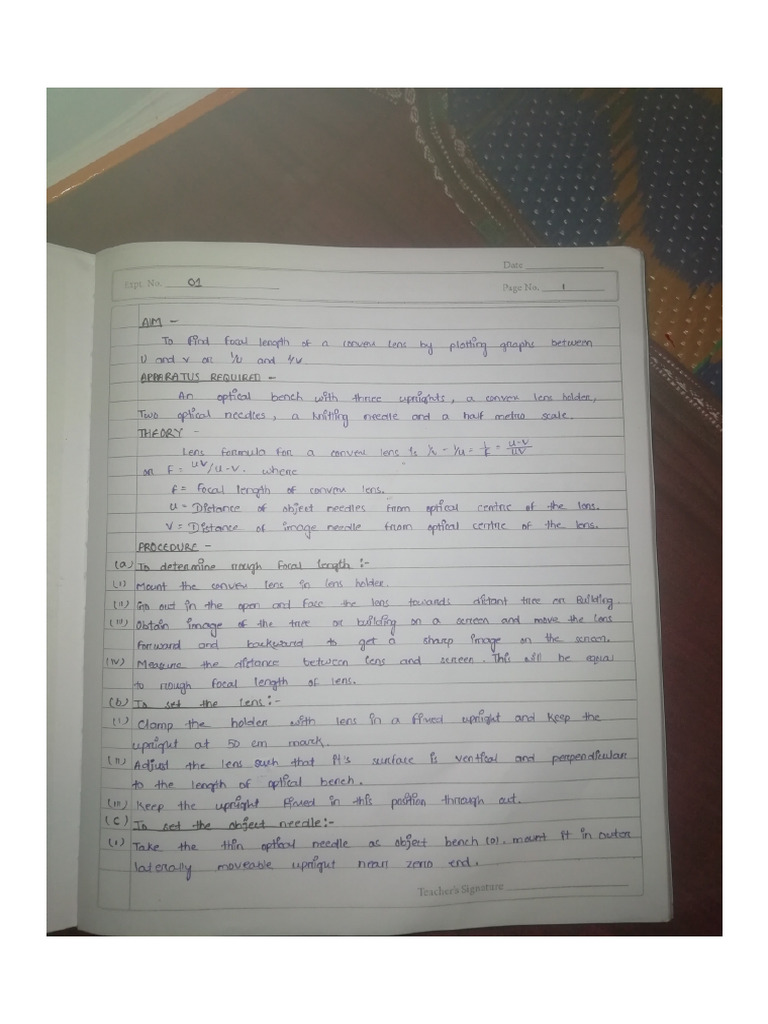 Date
Expt. No. 01
Page No. 1
AIM -
To find focal length of a convex lens by plotting graphs between
U and v or 1/u and 1/v
APPARATUS REQUIRED -
An optical bench with three uprights, a convex lens holder,
Two optical needles, a knitting needle and a half metre scale.
THEORY -
Lens formula for a convex lens is 1/v - 1/u = 1/f = u-v/uv
or F = uv/u-v. where
f = focal length of convex lens.
u = Distance of object needles from optical centre of the lens.
v = Distance of image needle from optical centre of the lens.
PROCEDURE -
(a) To determine rough focal length :-
(i) Mount the convex lens in lens holder.
(ii) out in the open and face the lens towards distant tree or Building.
(iii) Obtain image of the tree or building on a screen and move the lens
forward and backward to get a sharp image on the screen.
(iv) Measure the distance between lens and screen. This will be equal
to rough focal length of lens.
(b) To set the lens :-
(i) Clamp the holder with lens in a fixed upright and keep the
upright at 50 cm mark.
(ii) Adjust the lens such that it's surface is vertical and perpendicular
to the length of optical bench.
(iii) Keep the upright fixed in this position through out.
(C) To set the object needle :-
(i) Take the thin optical needle as object bench (o). mount it in outer
laterally moveable upright near zero end.
Teacher's Signature